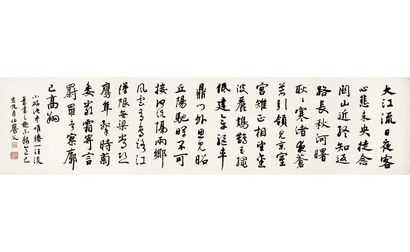 大江流日夜客
心悲未央徒念
關山近終知返
路長秋河曙
耿耿寒渚夜蒼
蒼引領見京室
宮雉正相望金
波麗鳷鵲玉繩
低建章驅車
鼎門外思見昭
丘陽馳暉不可
接何況隔兩鄉
風雲有鳥路江
漢限無梁常恐
鷹隼擊時菊
委嚴霜寄言
罻羅者寥廓
已高翔